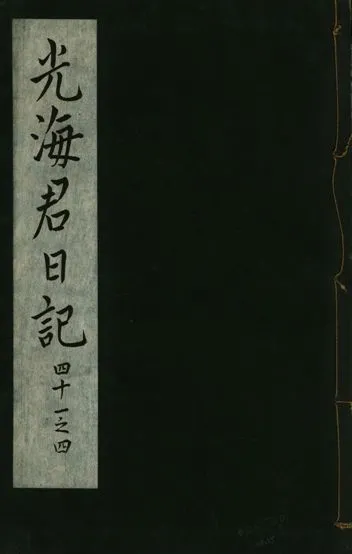 光海君日記
四十一之四